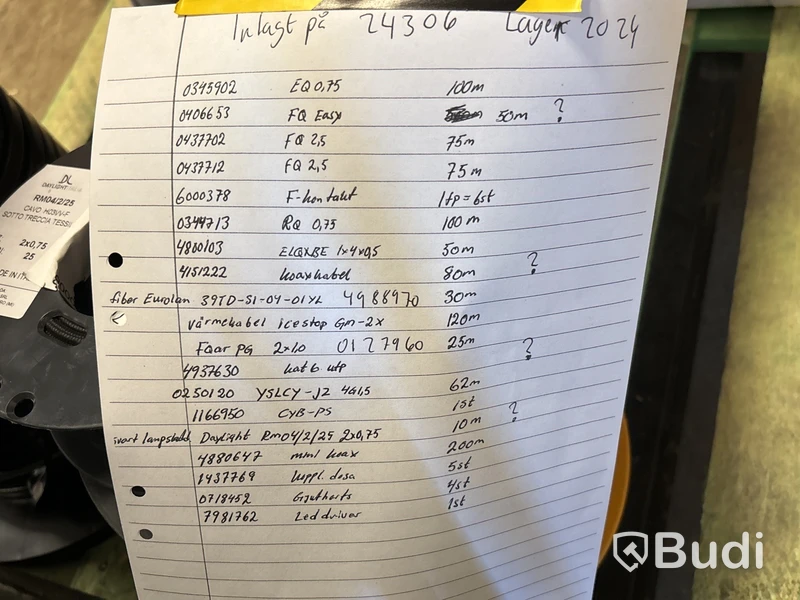 Inlagt på 24306 Lager 2024
0345902 EQ 0,75 100m
0406653 FQ Easy 50m ?
0437702 FQ 2,5 75m
0437712 FQ 2,5 75m
6000378 F-kontakt 1fp=6st
0344713 RQ 0,75 100m
4800103 ELQXBE 1x4x0,5 50m
4151222 koaxkabel 80m ?
fiber Eurolan 39TD-S1-04-01YL 4988970 30m
värmekabel icestop Gm-2x 120m
Faar PG 2x1.0 0127960 25m
4937630 kat 6 utp ?
0250120 YSLCY-JZ 4G1,5 62m
1166950 CYB-PS 1st
svart lampsladd Daylight Rm04/2/25 2x0,75 10m ?
4880647 mini koax 200m
1437769 koppl. dosa 5st
0718452 Gjutharts 4st
7981762 Led driver 1st
DL
DAYLIGHT
RM04/2/25
CAVO H03VV-F
SOTTO TRECCIA TESSU
2x0,75
25
DE IN IT
Budi